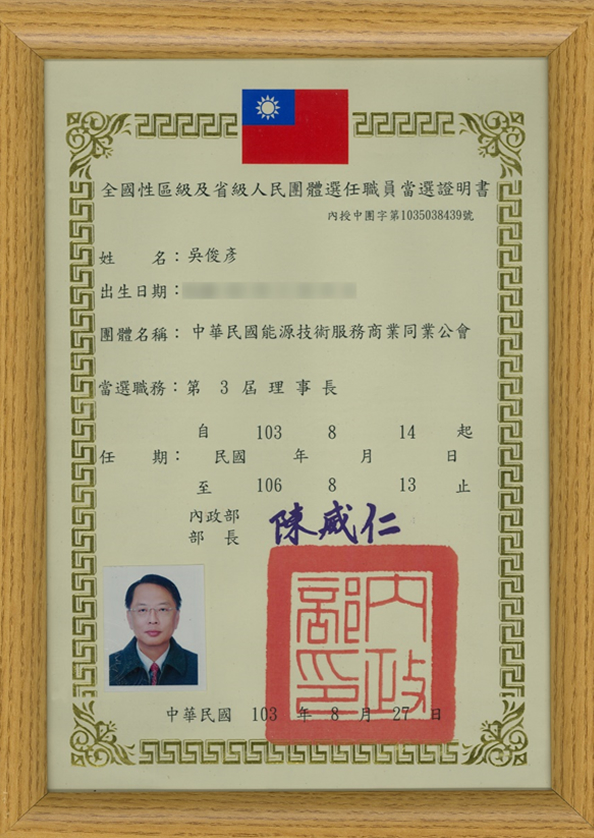 全國性區級及省級人民團體選任職員當選證明書
內授中團字第1035038439號
姓　　名：吳俊彥
出生日期：
團體名稱：中華民國能源技術服務商業同業公會
當選職務：第 3 屆理事長
自 103 8 14 起
任　　期：民國 年 月 日
至 106 8 13 止
內政部
部　長 陳威仁
內政部印
中華民國 103 年 8 月 27 日